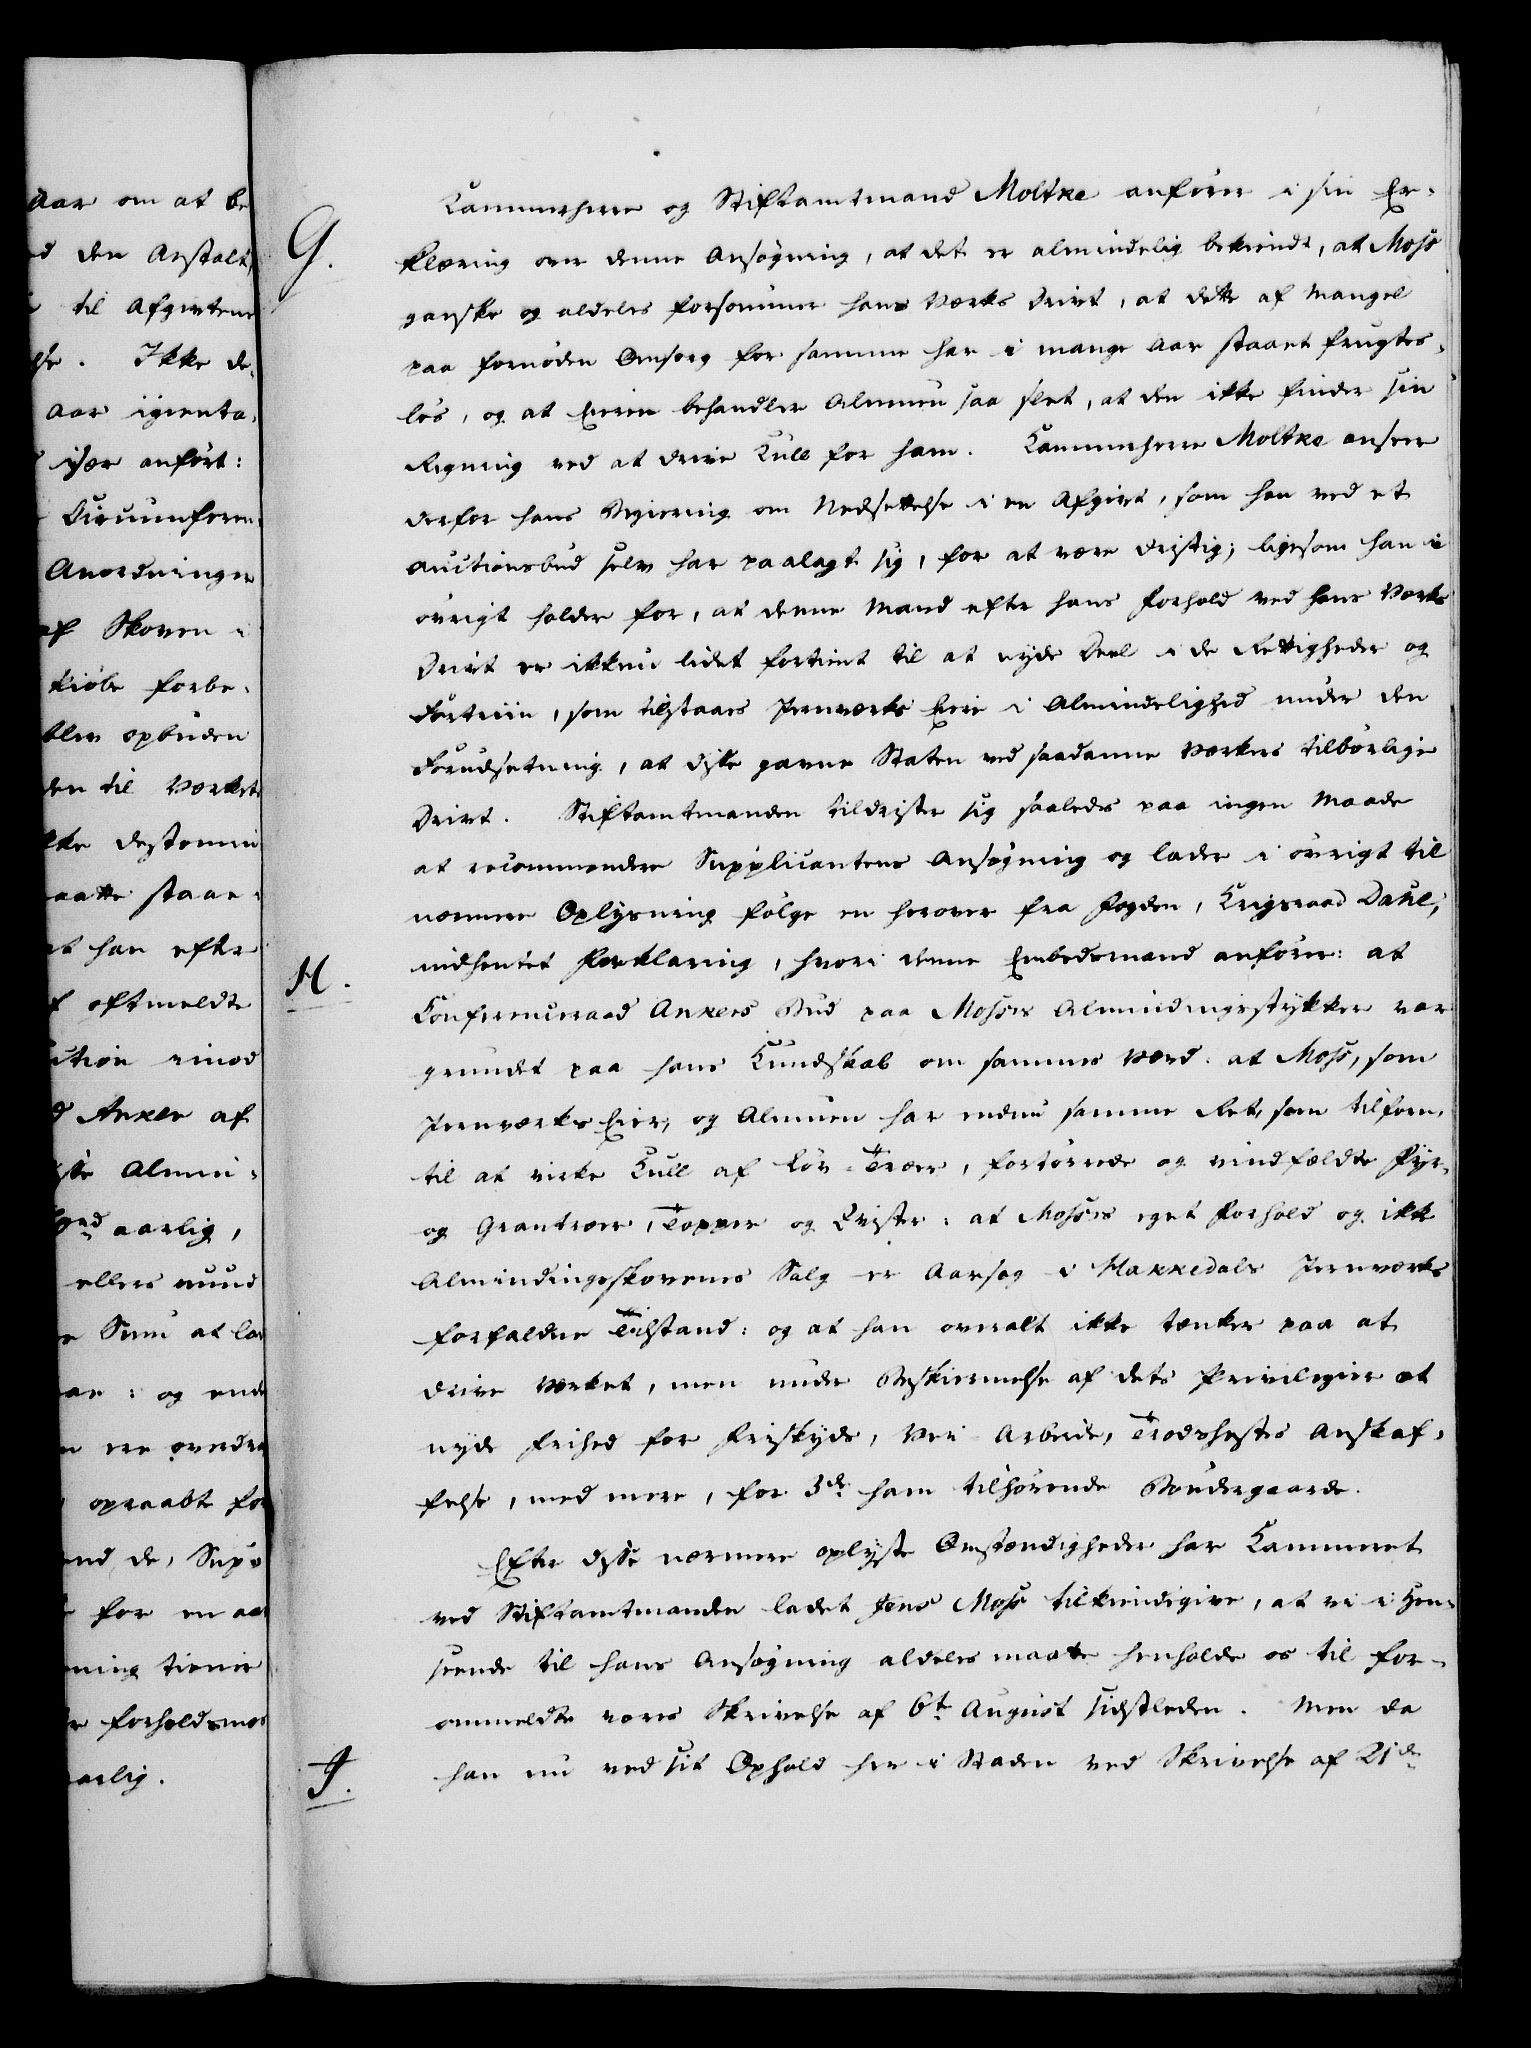 Aar om at be
d den Anstalt,
til Afgivtens
lse. Ikke de-
Aar igienta-
især anført:
Circumferen-
Anordninger
af Skoven i
kiøbe forbe-
blev opbuden
den til Værkets
lke destomin
aatte staae-
at han efter
f oftmeldte
uction imod
d Anker af
sse Almin-
aarlig,
ellers nund
e Sum at lae
ae: og ende
n ere ovedra
opraabt for
end de, Supp
for en aar
ning tiener
e forholdsmæs
aarlig.
G. Kammerherre og Stiftamtmand Moltke anfører i sin Er-
klæring over denne Ansøgning, at det er almindelig bekiendt, at Moss
ganske og aldeles forsømmer hans Værks Drivt, at dette af Mangel
paa fornøden Omsorg for samme har i mange Aar staaet frugtes-
løs, og at Eieren behandler Almuen saa slet, at den ikke finder sin
Regning ved at drive Kull for ham. Kammerherre Moltke anseer
derfor hans Begiering om Nedsættelse i en Afgivt, som han ved et
Auctionsbud selv har paalagt sig, for at være dristig; ligesom han i
øvrigt holder for, at denne Mand efter hans Forhold ved hans Værks
Drivt er ikkun lidet fortient til at nyde Deel i de Rettigheder og
Fortriin, som tilstaaes Jernværks Eiere i Almindelighed under den
Forudsætning, at disse gavne Staten ved saadanne Værkers tilbørlige
Drivt. Stiftamtmanden tildrister sig saaledes paa ingen Maade
at recommendere Supplicantens Ansøgning og lader i øvrigt til
nærmere Oplysning følge en herover fra Fogden, Krigsraad Dahl,
H. indhentet Forklaring, hvori denne Embedsmand anfører: at
Conferenceraad Ankers Bud paa Mosses Almindingsstykker var
grundet paa hans Kundskab om sammes Værd: at Moss, som
Jernværks Eier, og Almuen har endnu samme Ret, som tilforn,
til at virke Kull af Løv-Træer, fortørrede og vindfældte Fyr-
og Grantræer, Topper og Qvister: at Mosses eget Forhold og ikke
Almindingsskovenes Salg er Aarsag i Hakkedals Jernværks
forfaldne Tilstand: og at han overalt ikke tænker paa at
drive Værket, men under Beskiermelse af dets Privilegier at
nyde Frihed for Friskyds, Vei-Arbeide, Trodshestes Anskaf-
felse, med mere, for 3de ham tilhørende Bøndergaarde.
Efter disse nærmere oplyste Omstændigheder har Kammeret
ved Stiftamtmanden ladet Jens Moss tilkiendegive, at vi i Hen-
seende til hans Ansøgning aldeles maatte henholde os til for-
ommeldte vores Skrivelse af 6t August sidstleden. Men da
J. han nu ved sit Ophold her i Staden ved Skrivelse af 21de